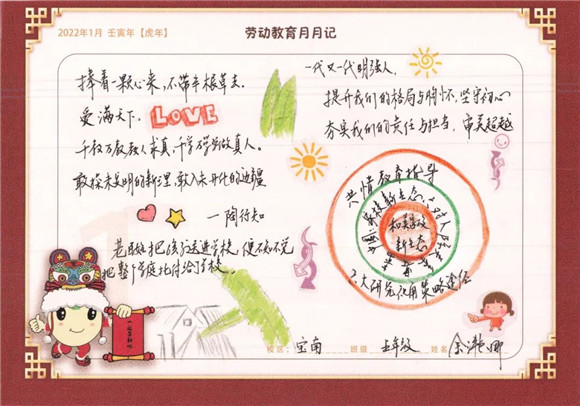 2022年1月 壬寅年【虎年】
劳动教育月月记
捧着一颗心来，不带半根草去。
爱满天下，LOVE
千教万教教人求真，千学万学学做真人。
敢探未发明的新理，敢入未开化的边疆
—陶行知
老百姓把孩子送进学校，便不得不说
把整个家庭托付给了学校。
一代又一代明强人，
提升我们的格局与胸怀，坚守初心
夯实我们的责任与担当，审美超越
共情教育指导
和美学校
新生态
2. 大研究 应用策略途径
校区：宝南
班级 五年级
姓名